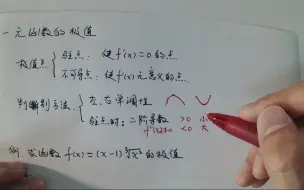 一元函数的极值
极值点 驻点：使f'(x)=0的点
不可导点：使f'(x)无意义的点
判别方法 左、右单调性
驻点时：二阶导数 >0 小
f''(x)≠0 <0 大
例. 求函数 f(x)=(x-1)∛x² 的极值